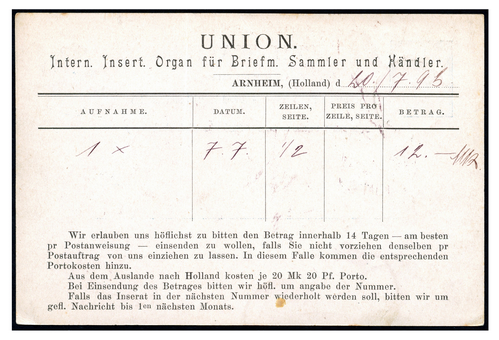 UNION.
Intern. Insert. Organ für Briefm. Sammler und Händler.
ARNHEIM, (Holland) d 20/7.95
AUFNAHME. DATUM. ZEILEN, SEITE. PREIS PRO ZEILE, SEITE. BETRAG.
1 x 7 7. 1/2 12.—
Wir erlauben uns höflichst zu bitten den Betrag innerhalb 14 Tagen — am besten
pr Postanweisung — einsenden zu wollen, falls Sie nicht vorziehen denselben pr
Postauftrag von uns einziehen zu lassen. In diesem Falle kommen die entsprechenden
Portokosten hinzu.
Aus dem Auslande nach Holland kosten je 20 Mk 20 Pf. Porto.
Bei Einsendung des Betrages bitten wir höfl. um angabe der Nummer.
Falls das Inserat in der nächsten Nummer wiederholt werden soll, bitten wir um
gefl. Nachricht bis 1en nächsten Monats.